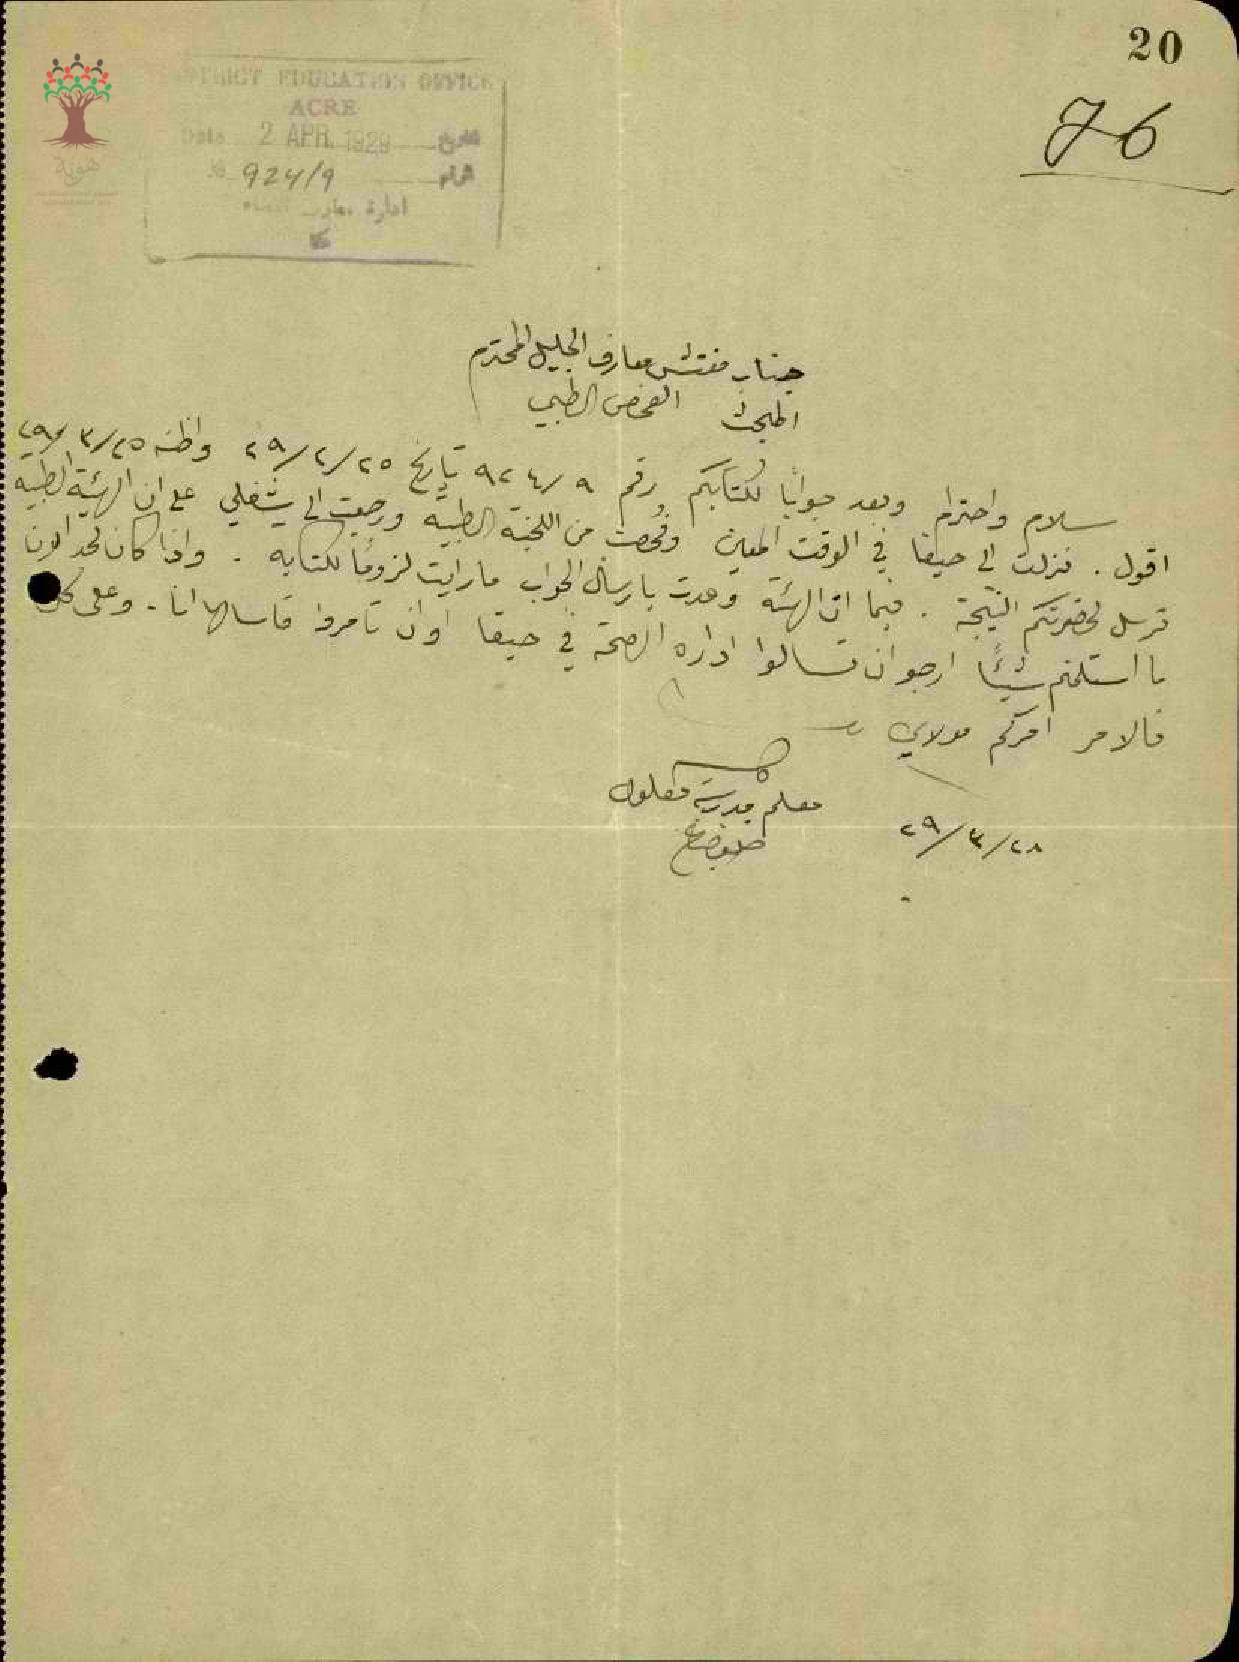 20
76
DISTRICT EDUCATION OFFICE
ACRE
Date 2 APR. 1929 تاريخ
No 924/9 الرقم
ادارة معارف
عكا
هوية
جناب مفتش معارف الجليل المحترم
المبحث الفحص الطبي
سلام واحترام وبعد جوابًا لكتابكم رقم ٩٢٤/٩ تاريخ ٢٩/٢/٢٥ واظنه ٢٩/٣/٢٥
اقول . فنزلت الى حيفا في الوقت المعين وفُحصت من اللجنة الطبية ورجعت الى شغلي على ان الهيئة الطبية
ترسل لحضرتكم النتيجة . فبما ان الهيئة وعدت بارسال الجواب ما رايت لزومًا لكتابه . واذا كان لحد الان
ما استلمتم شيئًا ارجو ان تسالوا ادارة الصحة في حيفا او ان تامروا فاسالها انا . وعلى كل
فالامر امركم مولاي
معلم مدرسة معلول
٢٩/٣/٢٨